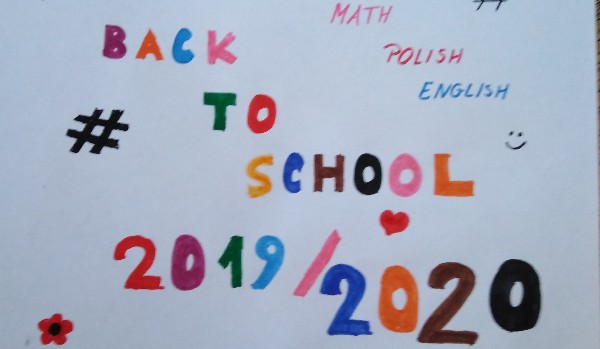 MATH
BACK
POLISH
ENGLISH
TO
#
SCHOOL
2019/2020